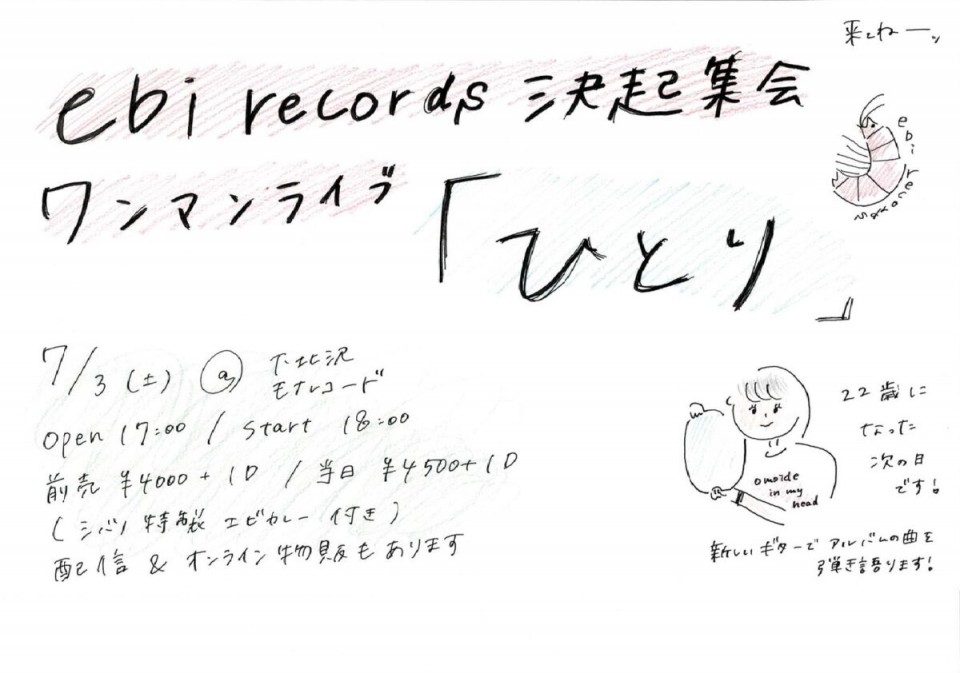 来てねーッ
ebi records 決起集会
ワンマンライブ「ひとり」
ebi
7/3(土) @ 下北沢モナレコード
open 17:00 / start 18:00
前売 ¥4000+1D / 当日 ¥4500+1D
(シバノ特製 エビカレー 付き)
配信 & オンライン物販もあります
omoide
in my
head
22歳に
なった
次の日
です!
新しいギターで アルバムの曲を
弾き語ります!